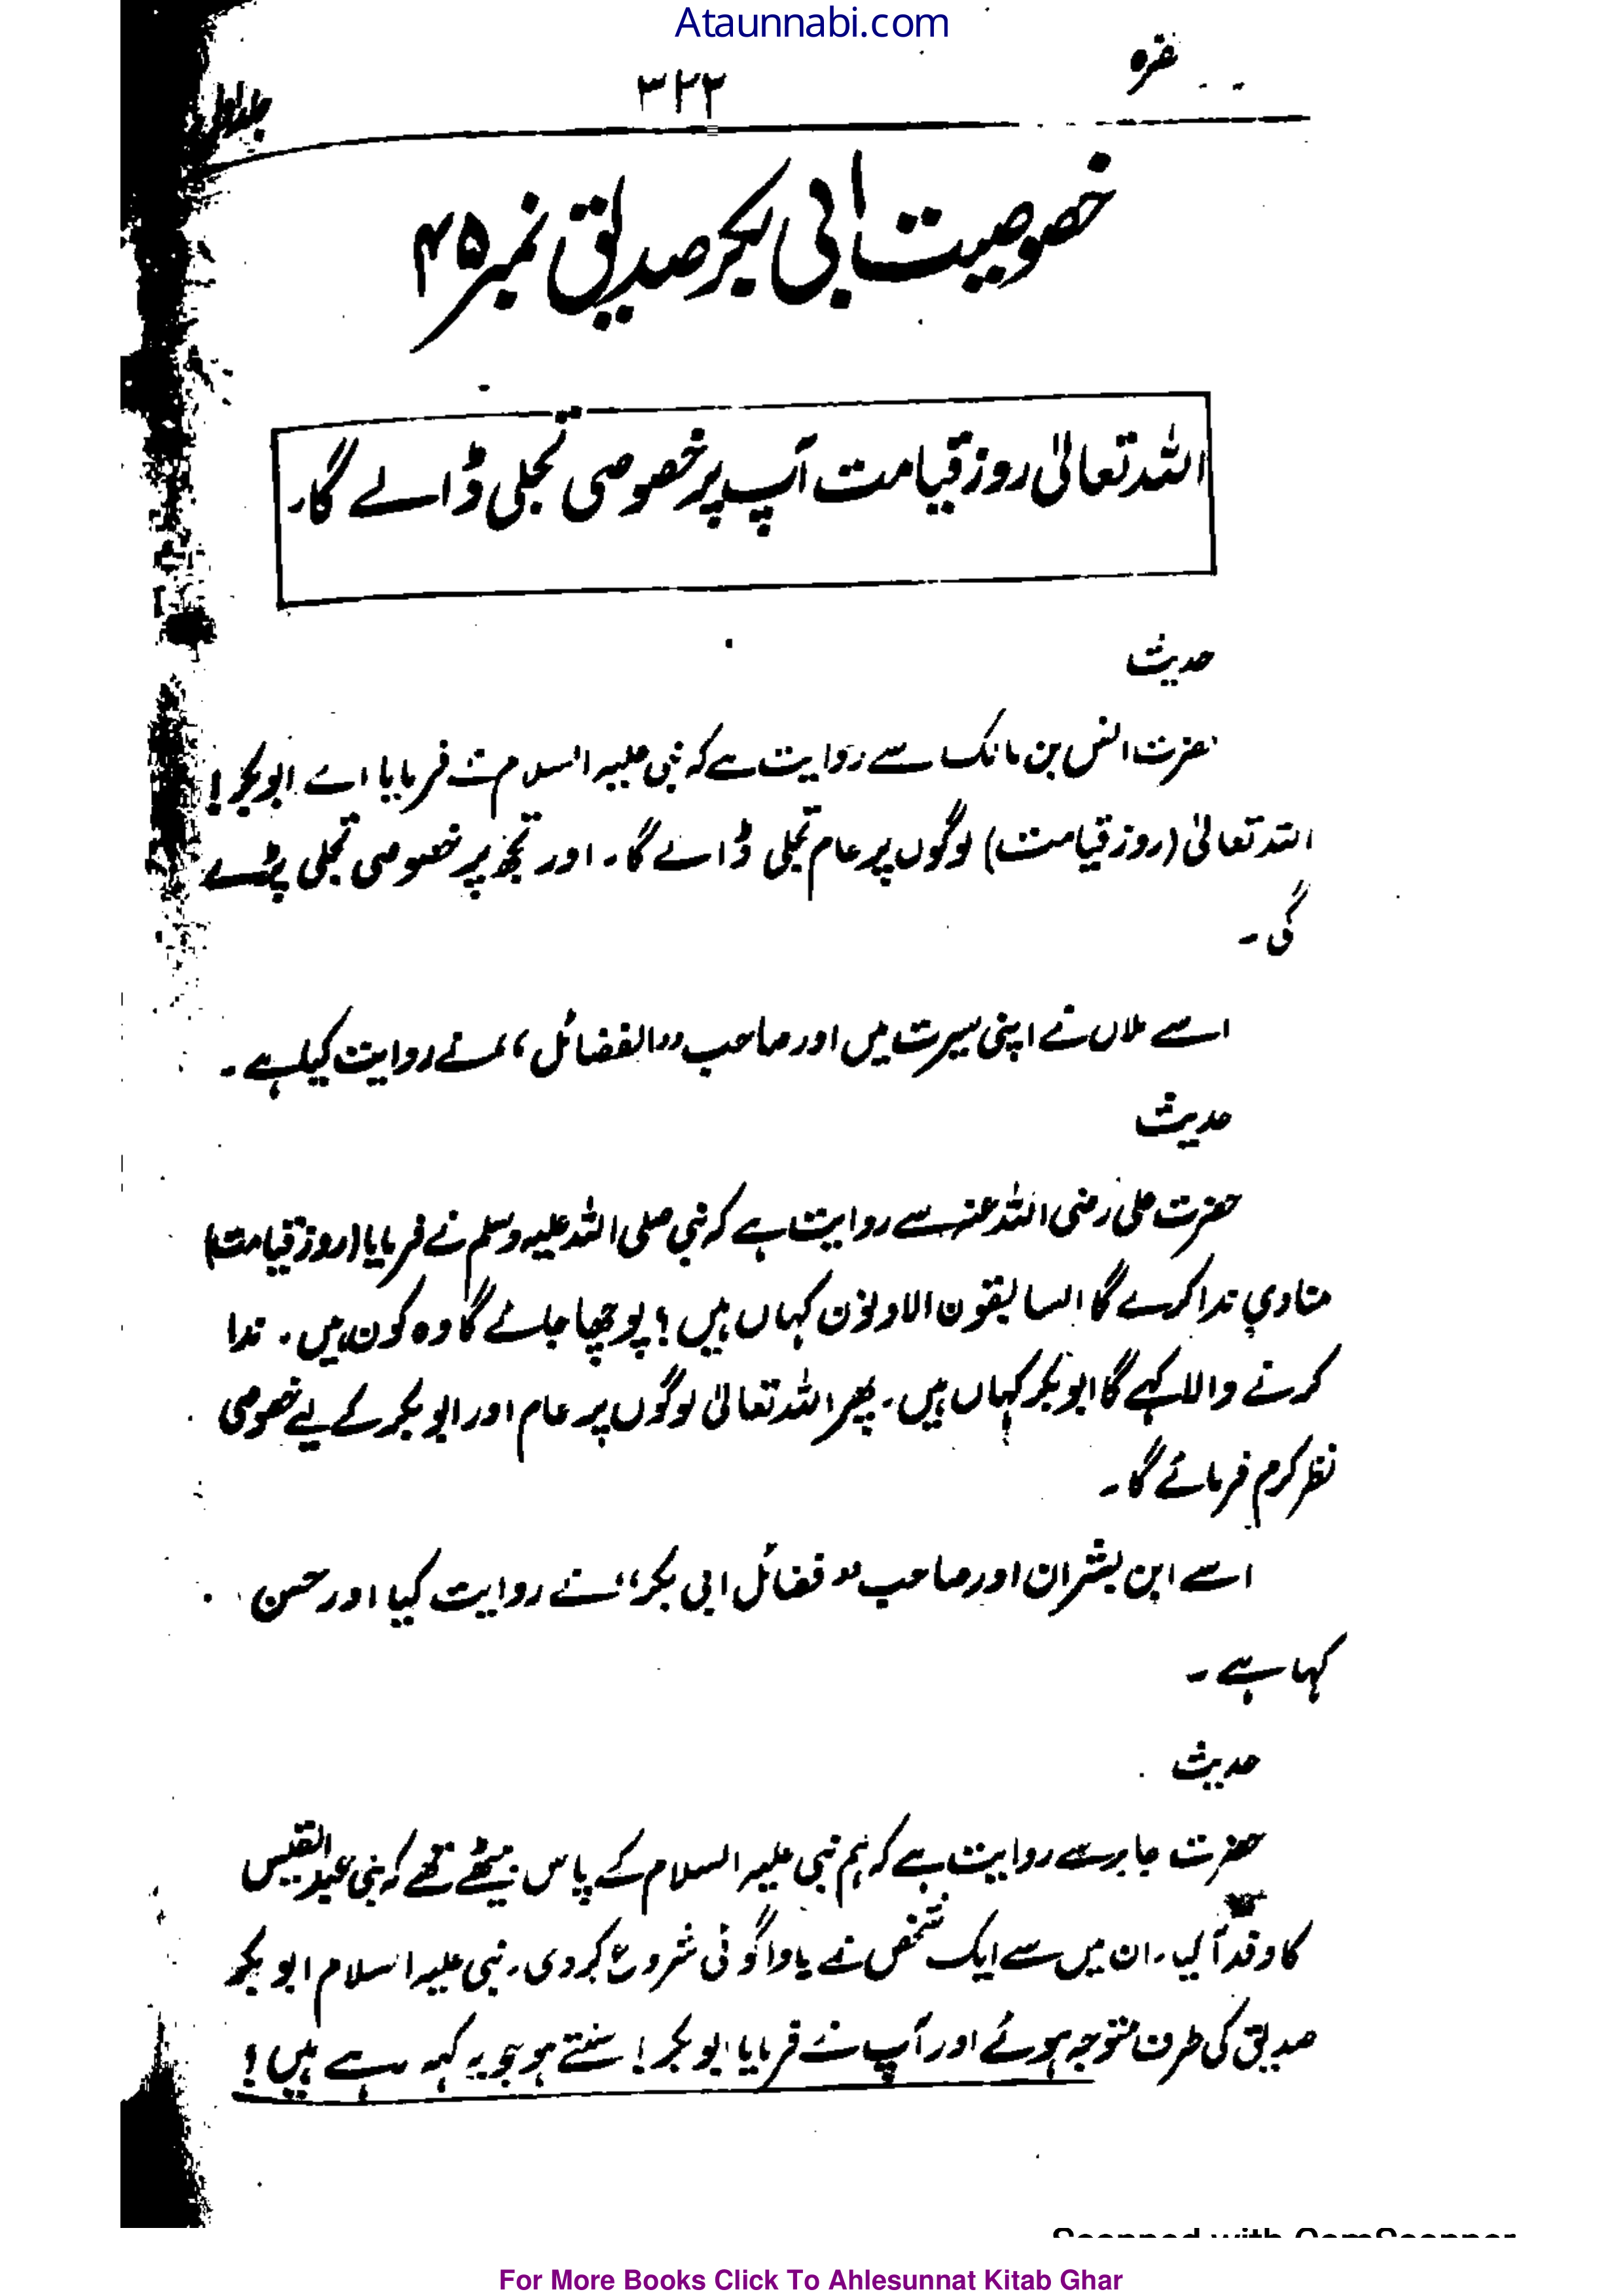 Ataunnabi.com
۳۲۲
جلد اول
خصوصیت ابی بکر صدیق نمبر ۴۵
اللہ تعالیٰ روز قیامت آپ پر خصوصی تجلی ڈالے گا۔
حدیث
حضرت انس بن مالک سے روایت ہے کہ نبی علیہ السلام نے فرمایا اے ابوبکر!
اللہ تعالیٰ (روز قیامت) لوگوں پر عام تجلی ڈالے گا۔ اور تجھ پر خصوصی تجلی پڑے
گی۔
اسے ملاں نے اپنی سیرت میں اور صاحب ’’الفضائل‘‘ نے روایت کیا ہے۔
حدیث
حضرت علی رضی اللہ عنہ سے روایت ہے کہ نبی صلی اللہ علیہ وسلم نے فرمایا (روز قیامت)
منادی ندا کرے گا السابقون الاولون کہاں ہیں؟ پوچھا جائے گا وہ کون ہیں۔ ندا
کرنے والا کہے گا ابوبکر کہاں ہیں۔ پھر اللہ تعالیٰ لوگوں پر عام اور ابوبکر کے لیے خصوصی
نظر کرم فرمائے گا۔
اسے ابن بشران اور صاحب ’’فضائل ابی بکر‘‘ نے روایت کیا اور حسن
کہا ہے۔
حدیث
حضرت جابر سے روایت ہے کہ ہم نبی علیہ السلام کے پاس بیٹھے تھے کہ بنی عبدالقیس
کا وفد آ گیا۔ ان میں سے ایک شخص نے یاوا گوئی شروع کر دی۔ نبی علیہ السلام ابوبکر
صدیق کی طرف متوجہ ہوئے اور آپ نے فرمایا ابوبکر! سنتے ہو جو یہ کہہ رہے ہیں؟
Scanned with CamScanner
For More Books Click To Ahlesunnat Kitab Ghar